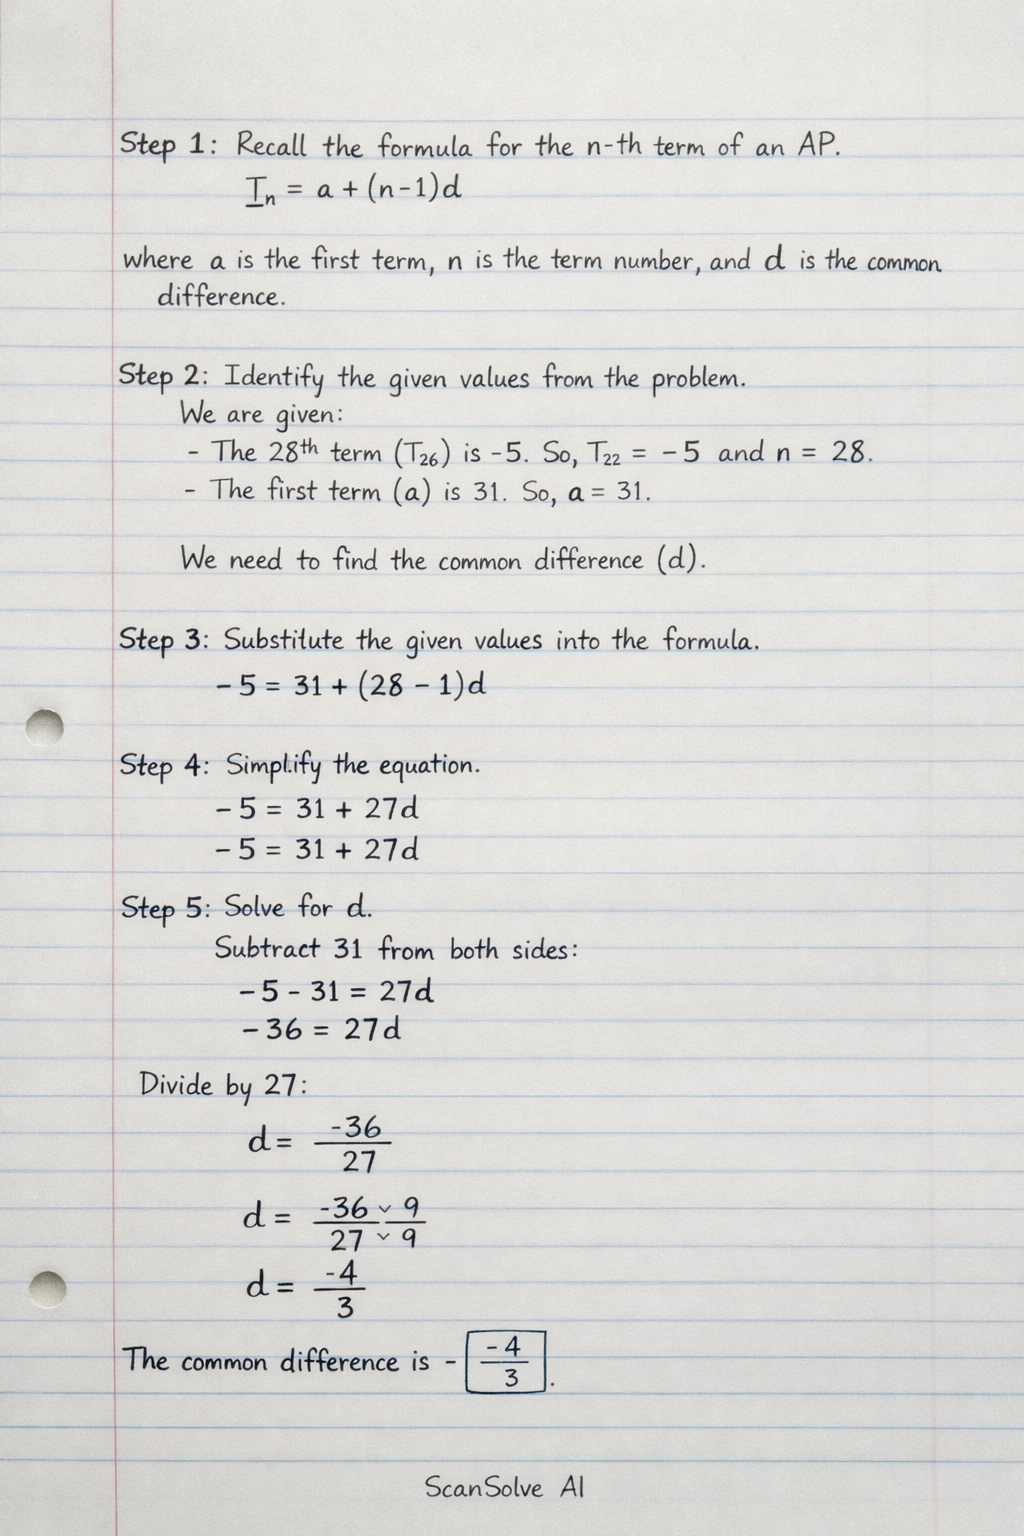 Step 1: Recall the formula for the n-th term of an AP.
Iₙ = a + (n-1)d
where a is the first term, n is the term number, and d is the common
difference.
Step 2: Identify the given values from the problem.
We are given:
- The 28ᵗʰ term (T₂₆) is -5. So, T₂₂ = -5 and n = 28.
- The first term (a) is 31. So, a = 31.
We need to find the common difference (d).
Step 3: Substitute the given values into the formula.
-5 = 31 + (28 - 1)d
Step 4: Simplify the equation.
-5 = 31 + 27d
-5 = 31 + 27d
Step 5: Solve for d.
Subtract 31 from both sides:
-5 - 31 = 27d
-36 = 27d
Divide by 27:
d = -36/27
d = -36 ˅ 9 / 27 ˅ 9
d = -4/3
The common difference is - -4/3.
ScanSolve AI